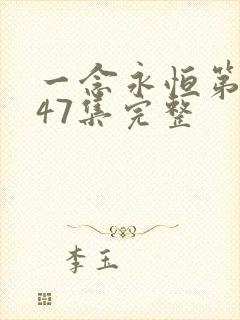 一念永恒第
47集完整
李玉